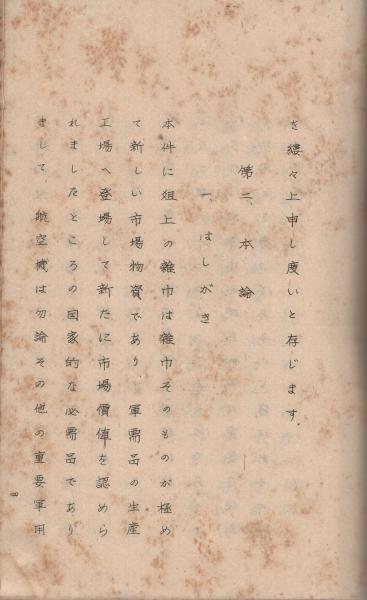 を縷々上申し度いと存じます。
第二、本論
一、はしがき
本件に俎上の雑巾は雑巾そのものが極め
て新しい市場物資であり、軍需品の生産
工場へ登場して新たに市場價値を認めら
れましたところの国家的な必需品であり
まして、航空機は勿論その他の重要軍用
8